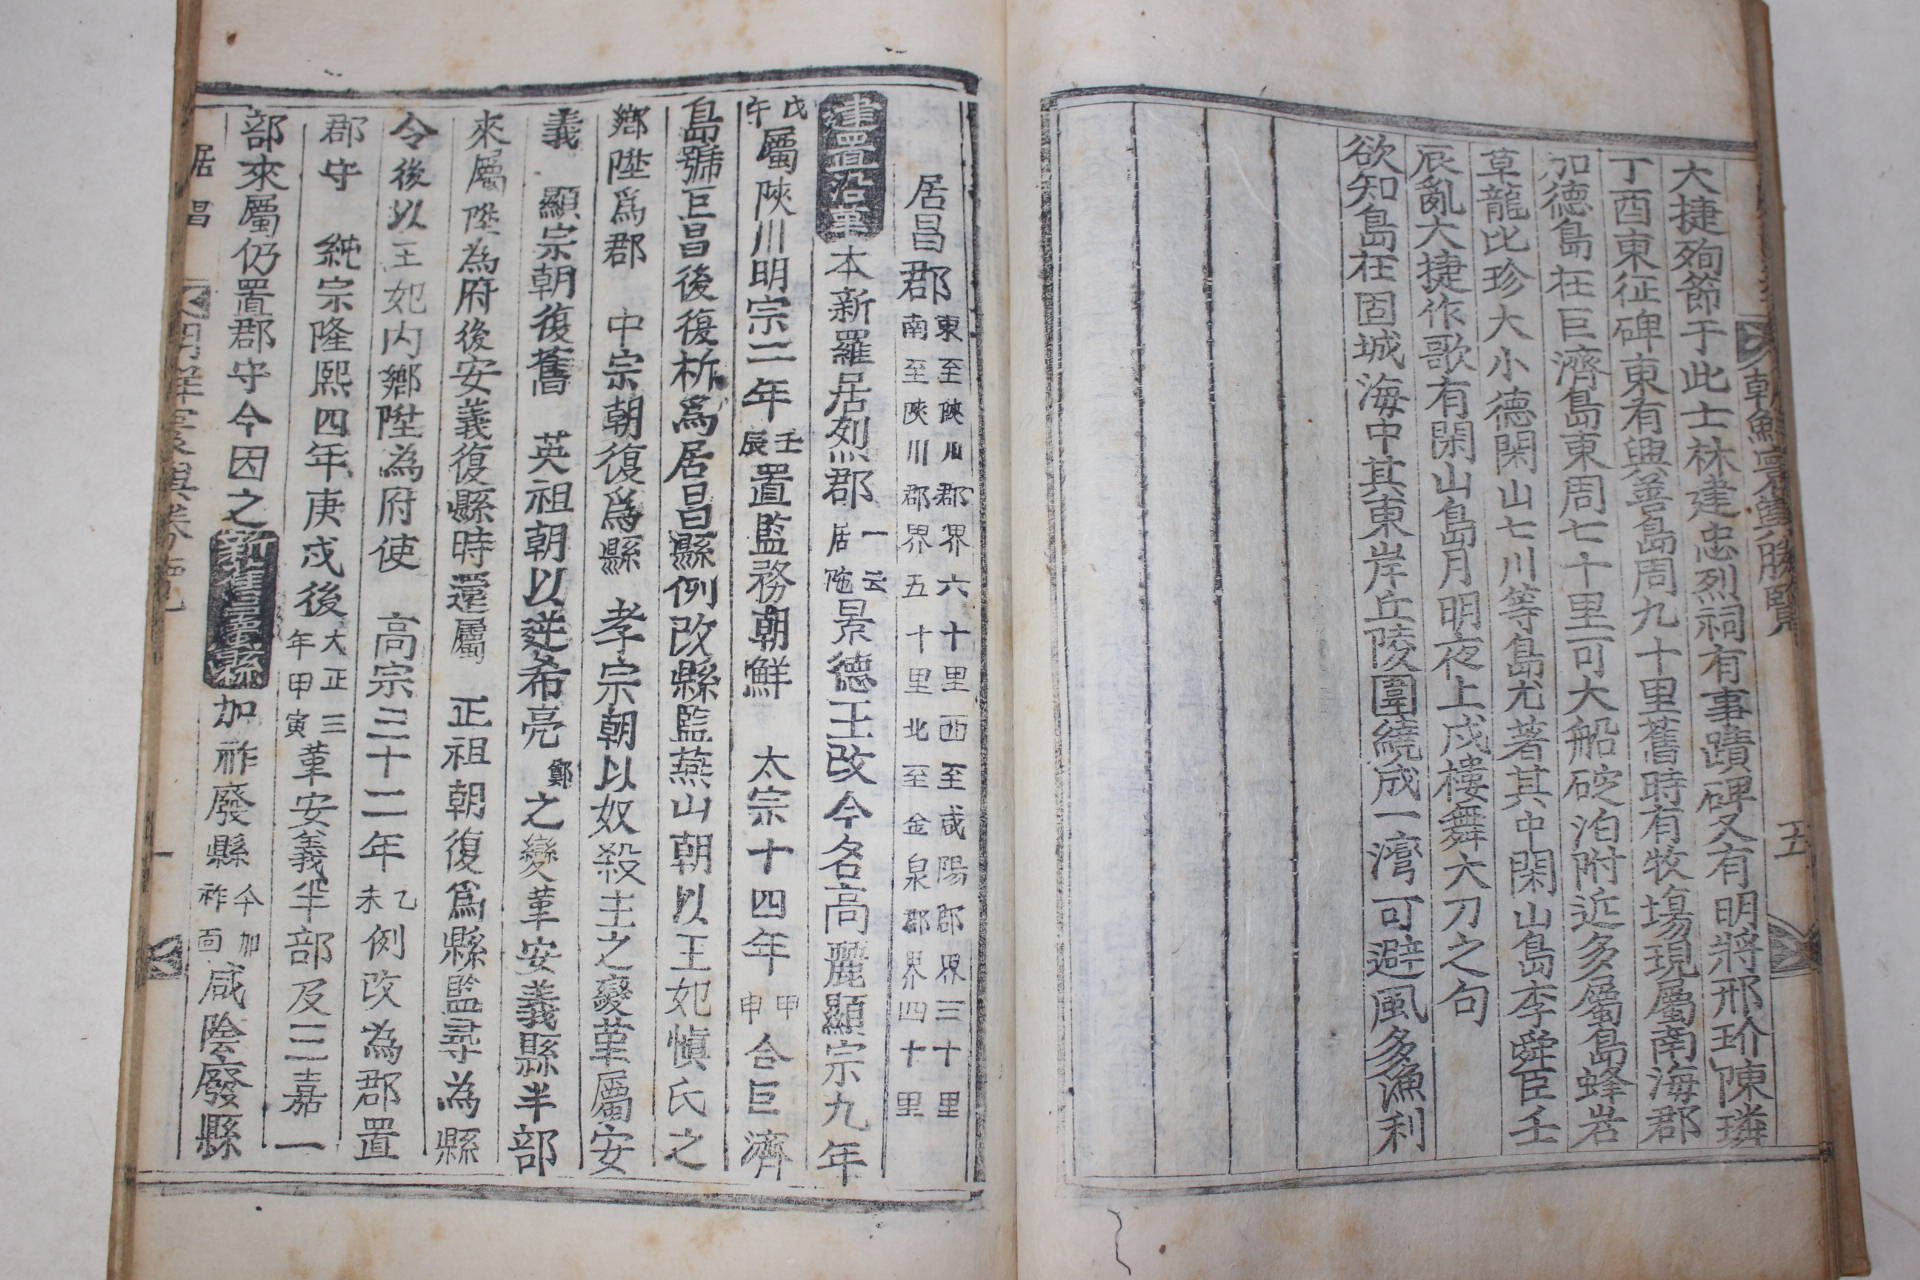 朝鮮寰輿勝覽
五
大捷殉節于此士林建忠烈祠有事蹟碑又有明將邢玠陳璘
丁酉東征碑東有興善島周九十里舊時有牧場現屬南海郡
加德島在巨濟島東周七十里可大船碇泊附近多屬島蜂岩
草龍比珍大小德閑山七川等島尤著其中閑山島李舜臣壬
辰亂大捷作歌有閑山島月明夜上戍樓舞大刀之句
欲知島在固城海中其東岸丘陵圍繞成一湾可避風多漁利
居昌郡東至陜川郡界六十里西至咸陽郡界三十里南至陜川郡界五十里北至金泉郡界四十里
建置沿革本新羅居烈郡一云居陁景德王改今名高麗顯宗九年
戊午屬陜川明宗二年壬辰置監務朝鮮 太宗十四年甲申合巨濟
島號巨昌後復析爲居昌縣例改縣監燕山朝以王妃愼氏之
鄕陞爲郡 中宗朝復爲縣 孝宗朝以奴殺主之變革屬安
義 顯宗朝復舊 英祖朝以逆希亮鄭之變革安義縣半部
來屬陞為府後安義復縣時還屬 正祖朝復爲縣監尋為縣
令後以王妃内鄕陞為府使 高宗三十二年乙未例改為郡置
郡守 純宗隆熙四年庚戌後大正三年甲寅革安義半部及三嘉一
部來屬仍置郡守今因之新舊屬縣加祚廢縣今加祚面咸陰廢縣
居昌